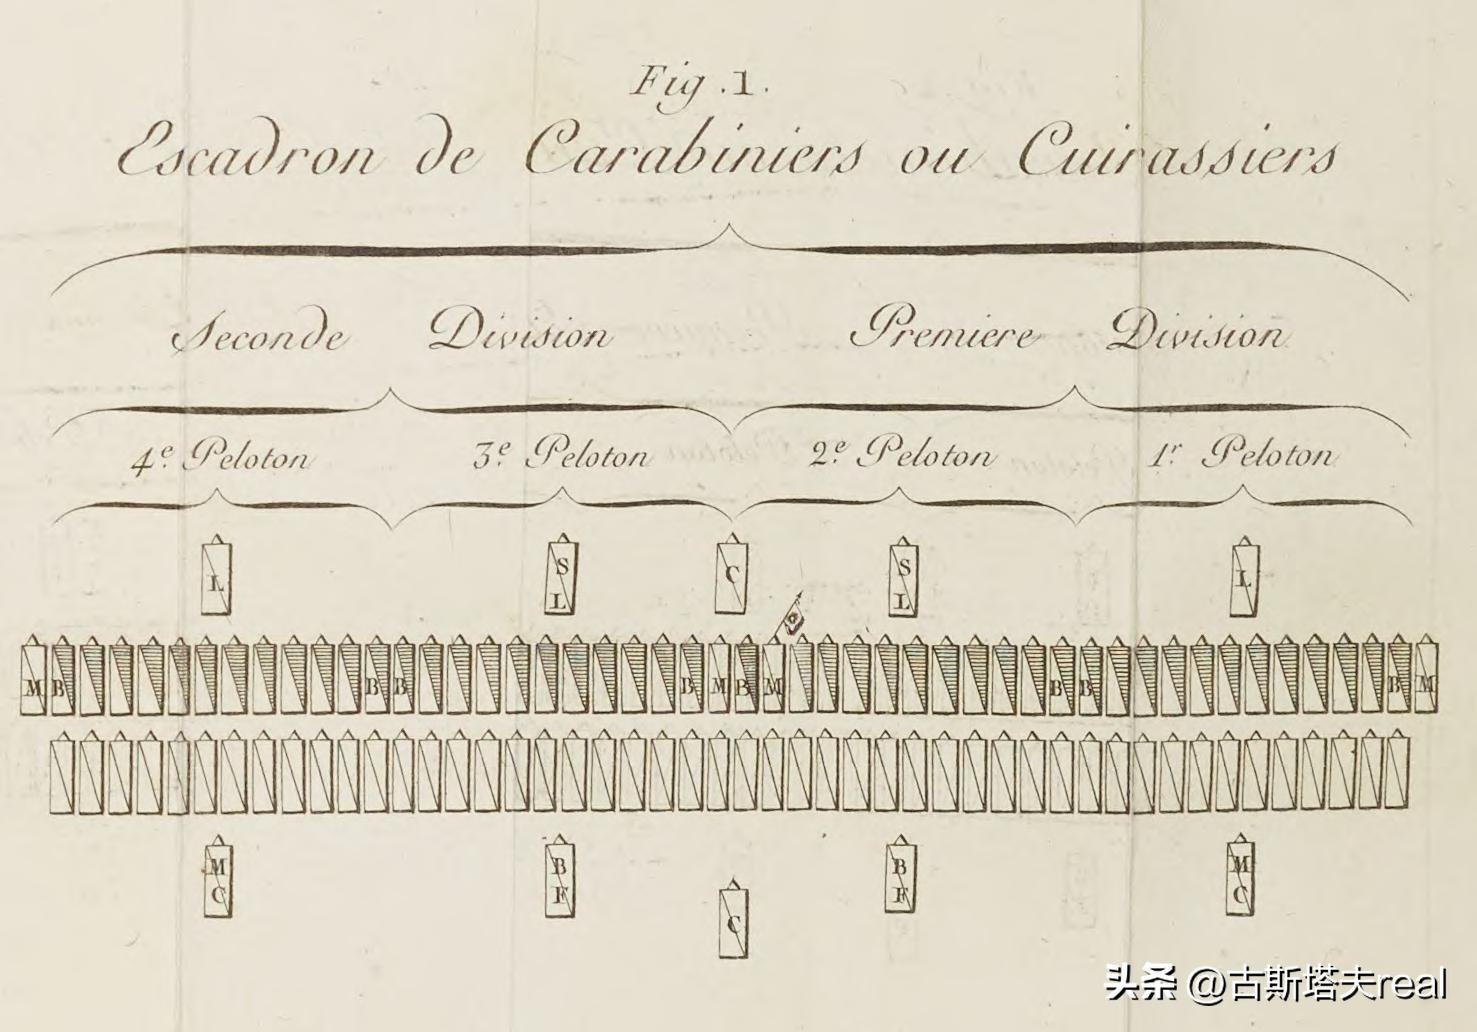 Fig. 1.
Escadron de Carabiniers ou Cuirassiers
Seconde Division Premiere Division
4e. Peloton 3e. Peloton 2e. Peloton 1r. Peloton
L S L C S L L
M B B B B M B M B B B M
M C B F B F M C
C
头条 @古斯塔夫real